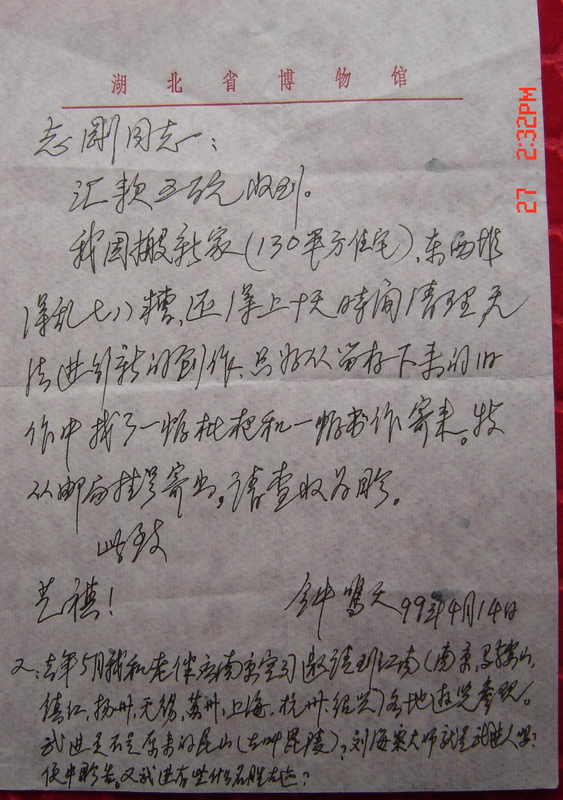 湖北省博物馆
志刚同志：
汇款五百元收到。
我因搬新家（130平方住宅）、东西堆
得乱七八糟，还得上十天时间清理无
法进行新的创作、只好从留存下来的旧
作中找了一幅枇杷和一幅书作寄来。按
从邮局挂号寄出，请查收为盼。
此致
艺祺！
钟鸣天 99年4月14日
又：去年5月我和老伴应南京空司邀请到江南（南京、马鞍山、
镇江、扬州、无锡、苏州、上海、杭州、绍兴）各地游览参观。
武进是不是原来的昆山（古叫昆陵）？刘海粟大师就是武进人吧？
便中盼告。又武进有些什么名胜古迹？
27 2:32PM